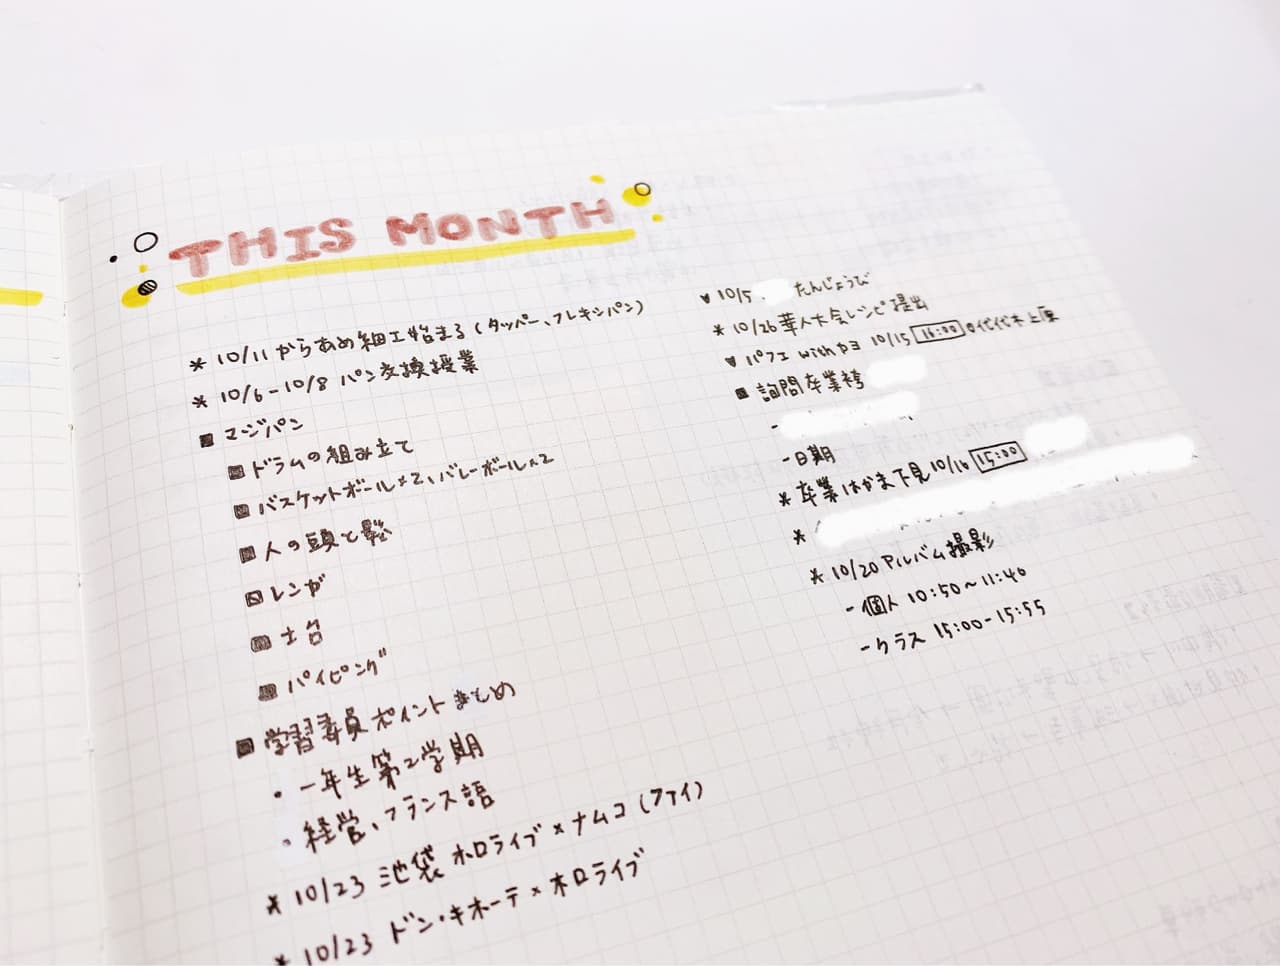 THIS MONTH
* 10/11 からあめ細工始まる(タッパー、フレキシパン)
* 10/6-10/8 パン交換授業
■ マジパン
■ ドラムの組み立て
■ バスケットボール×2、バレーボール×2
■ 人の頭と髪
■ レンガ
■ 土台
■ パイピング
■ 学習委員ポイントまとめ
・一年生第2学期
・経営、フランス語
* 10/23 池袋 ホロライブ×ナムコ(ファイ)
* 10/23 ドン・キホーテ×ホロライブ
♥ 10/5 たんじょうび
* 10/26 華人大会レシピ提出
♥ パフェ with カヨ 10/15 16:00 @代々木上原
■ 詢問卒業袴
-
- 日期
* 卒業はかま下見 10/16 15:00
*
* 10/20 アルバム撮影
- 個人 10:50~11:40
- クラス 15:00-15:55